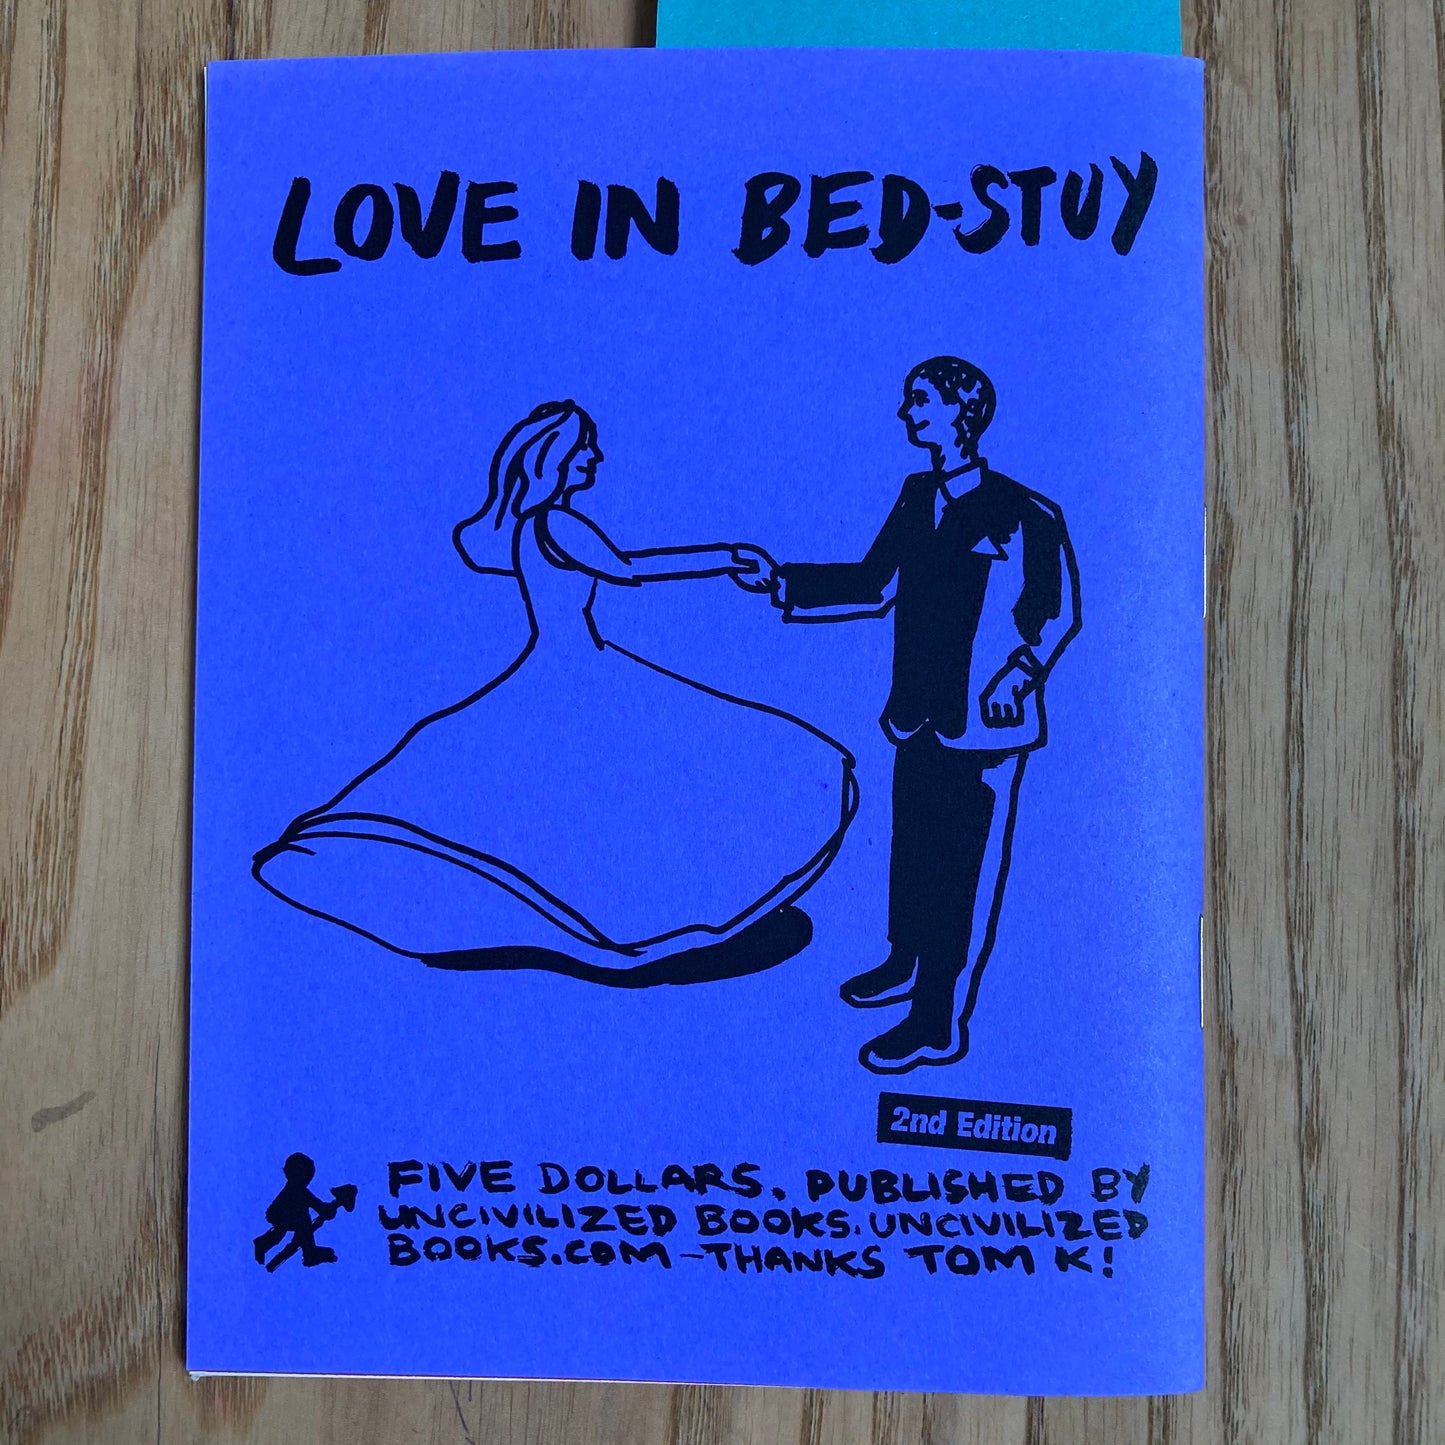 LOVE IN BED-STUY
2nd Edition
FIVE DOLLARS. PUBLISHED BY
UNCIVILIZED BOOKS. UNCIVILIZED
BOOKS.COM - THANKS TOM K!